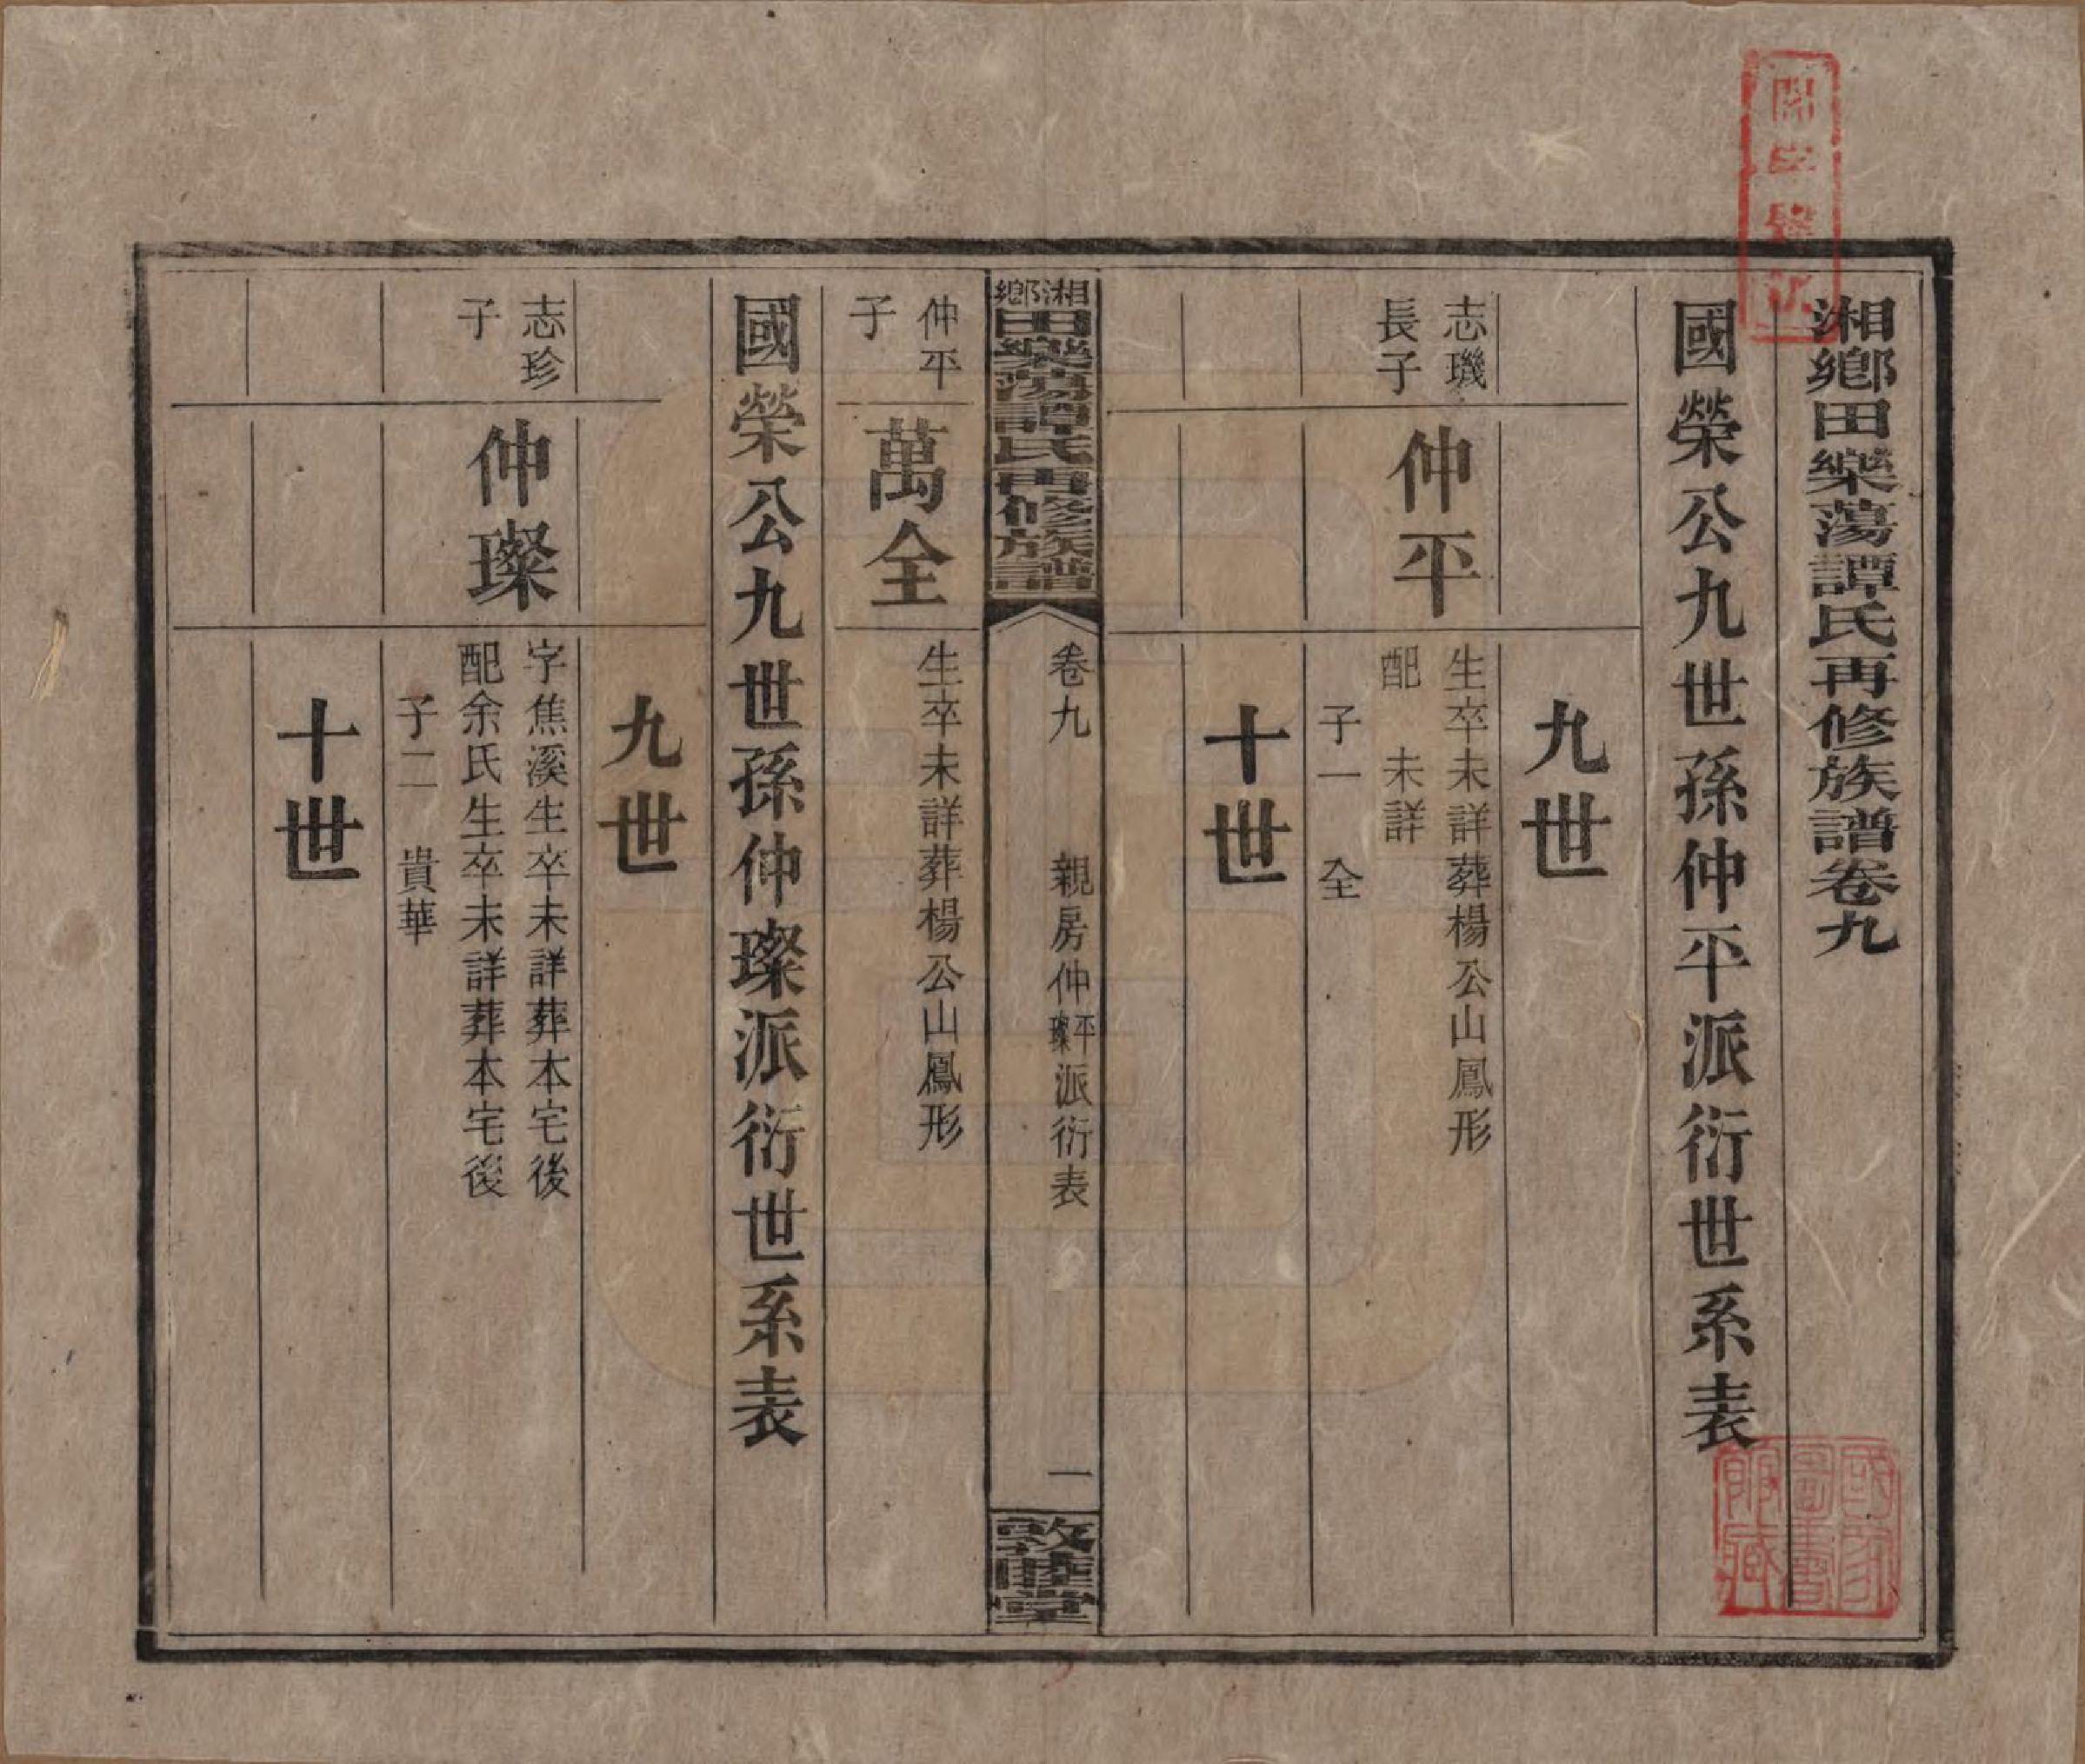 湘鄉田樂蕩譚氏再修族譜卷九
國榮公九世孫仲平派衍世系表
九世
志璣
長子
仲平
生卒未詳葬楊公山鳳形
配　未詳
子一　全
十世
湘鄉田樂蕩譚氏再修族譜
卷九　親房仲平璨派衍表
一
敦睦堂
仲平
子
萬全
生卒未詳葬楊公山鳳形
國榮公九世孫仲璨派衍世系表
九世
志珍
子
仲璨
字焦溪生卒未詳葬本宅後
配余氏生卒未詳葬本宅後
子二　貴華
十世
國家
圖書
館藏